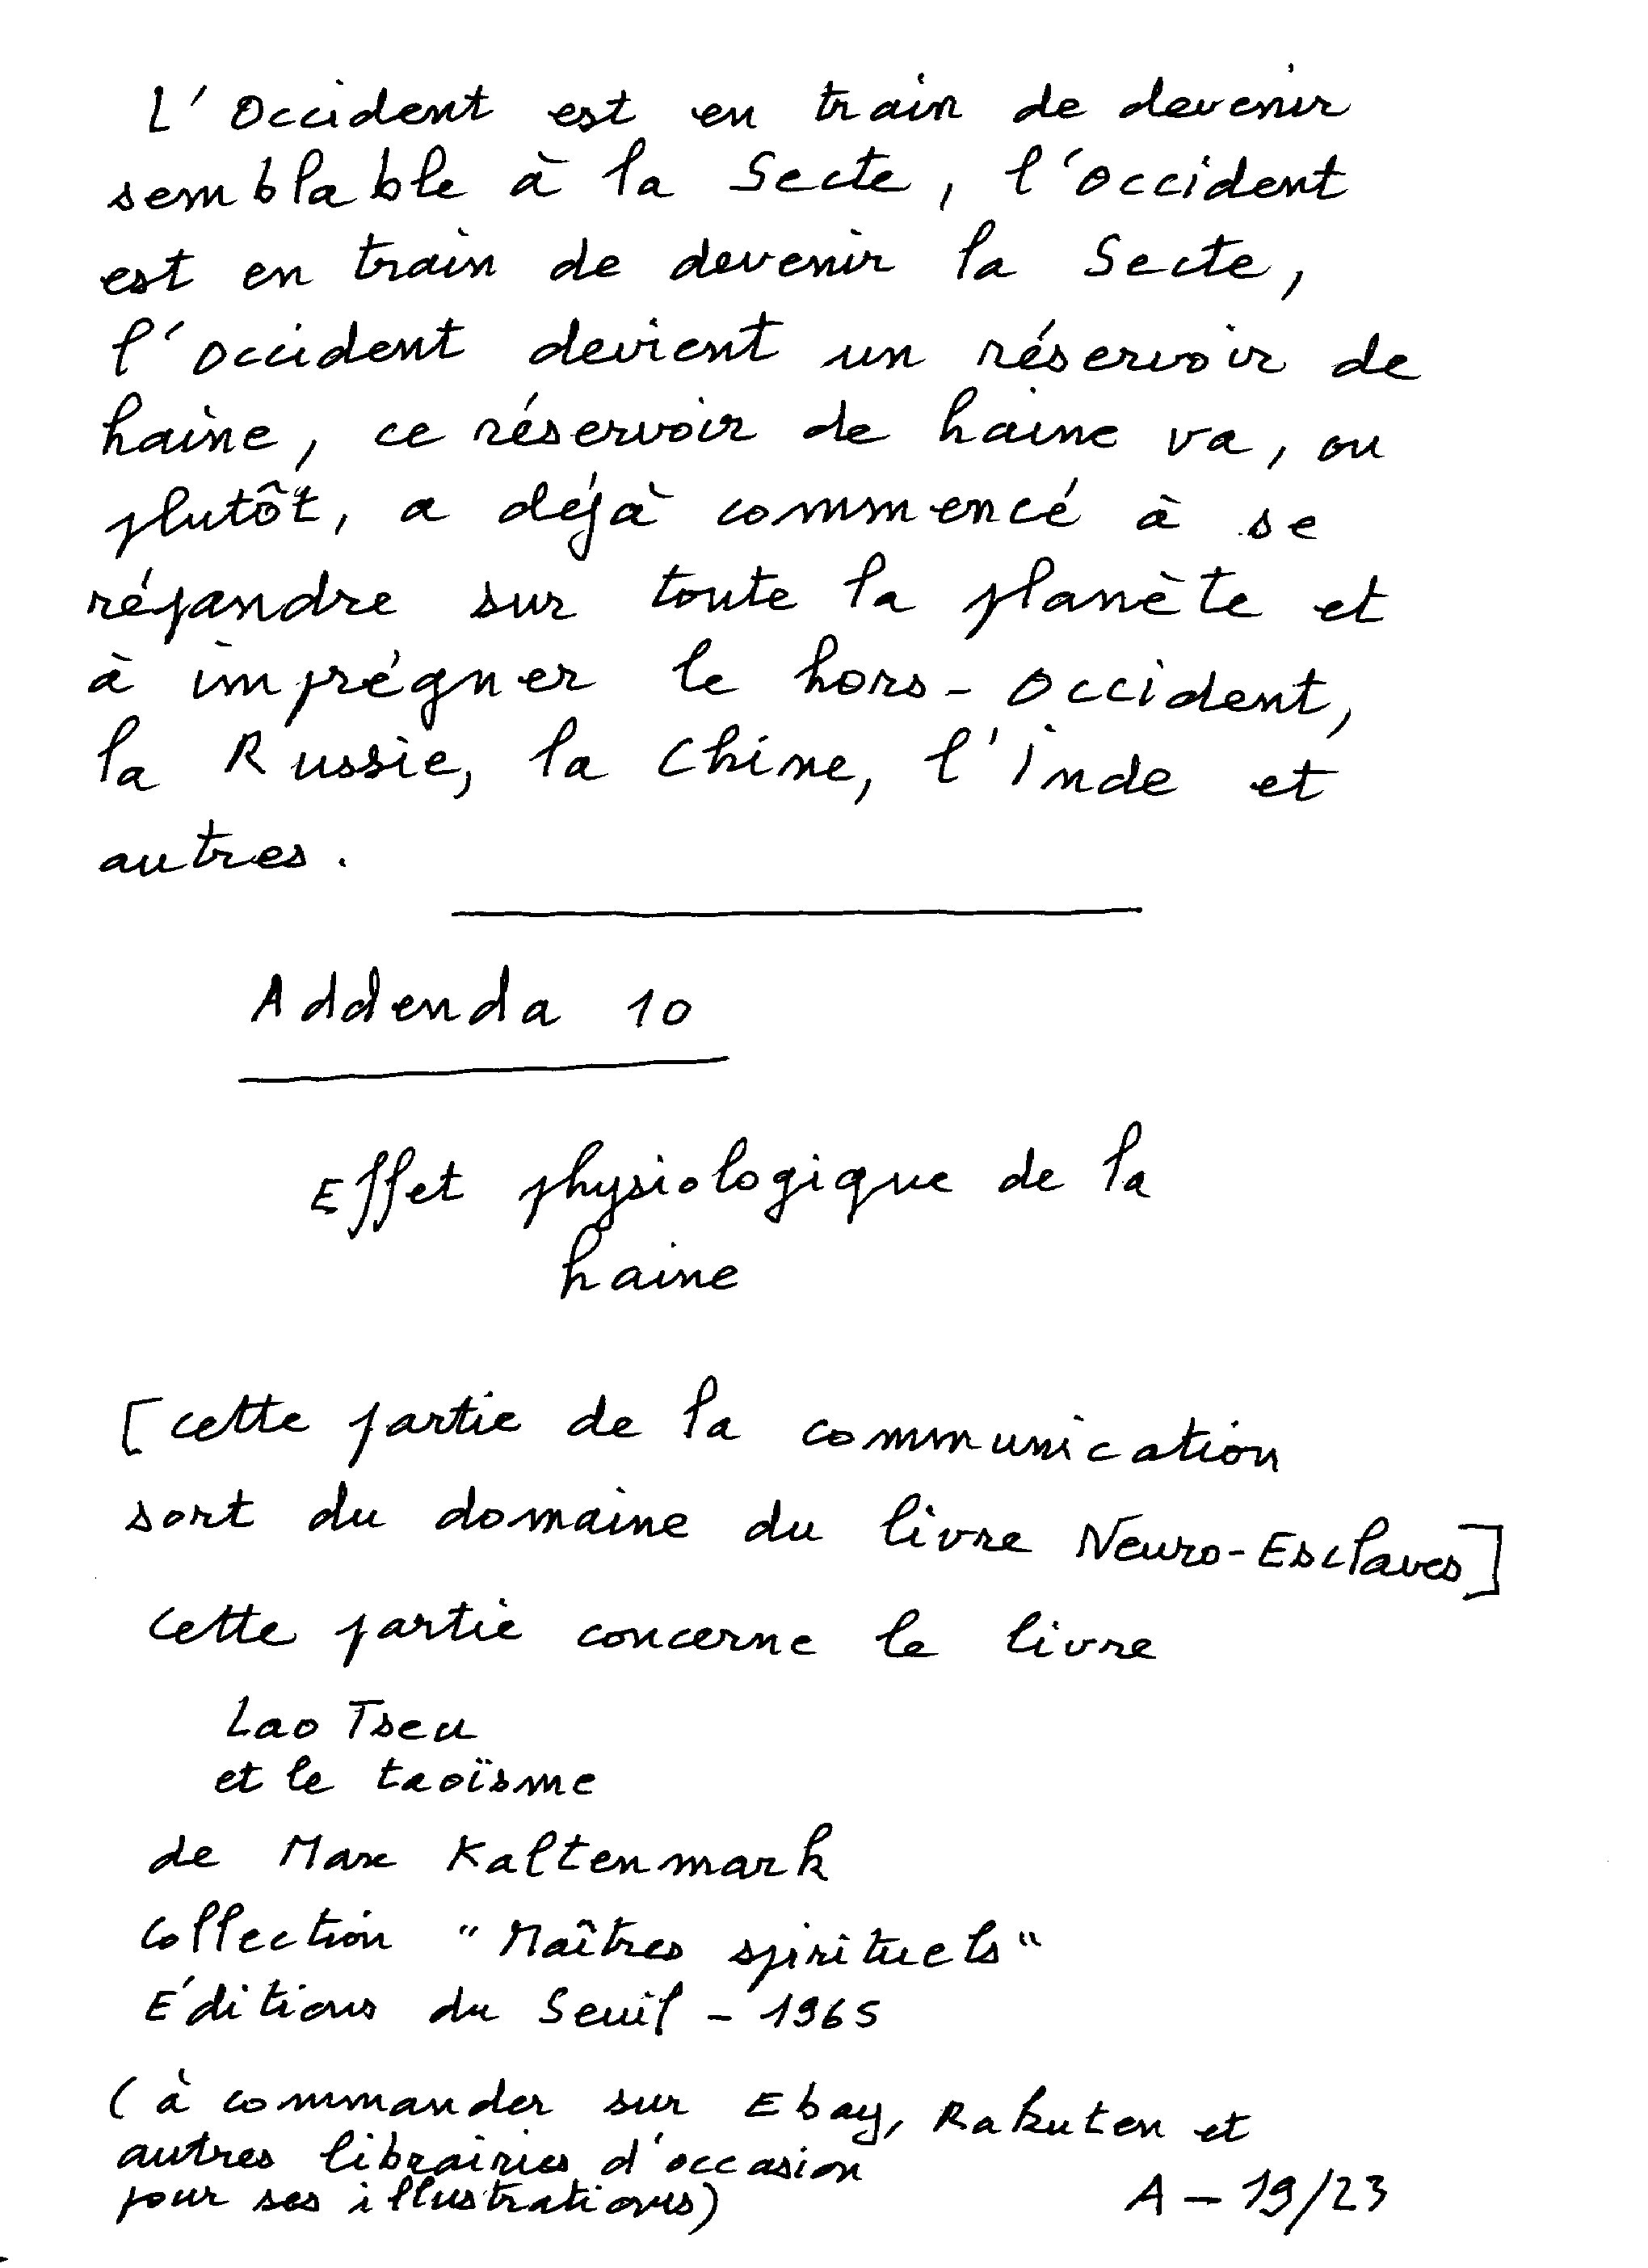 L'Occident est en train de devenir
semblable à la Secte, l'Occident
est en train de devenir la Secte,
l'Occident devient un réservoir de
haine, ce réservoir de haine va, ou
plutôt, a déjà commencé à se
répandre sur toute la planète et
à imprégner le hors-Occident,
la Russie, la Chine, l'Inde et
autres.
Addenda 10
Effet physiologique de la
haine
[cette partie de la communication
sort du domaine du livre Neuro-Esclaves]
Cette partie concerne le livre
Lao Tseu
et le taoïsme
de Max Kaltenmark
Collection "Maîtres spirituels"
Éditions du Seuil - 1965
(à commander sur Ebay, Rakuten et
autres librairies d'occasion
pour ses illustrations)
A - 19/23